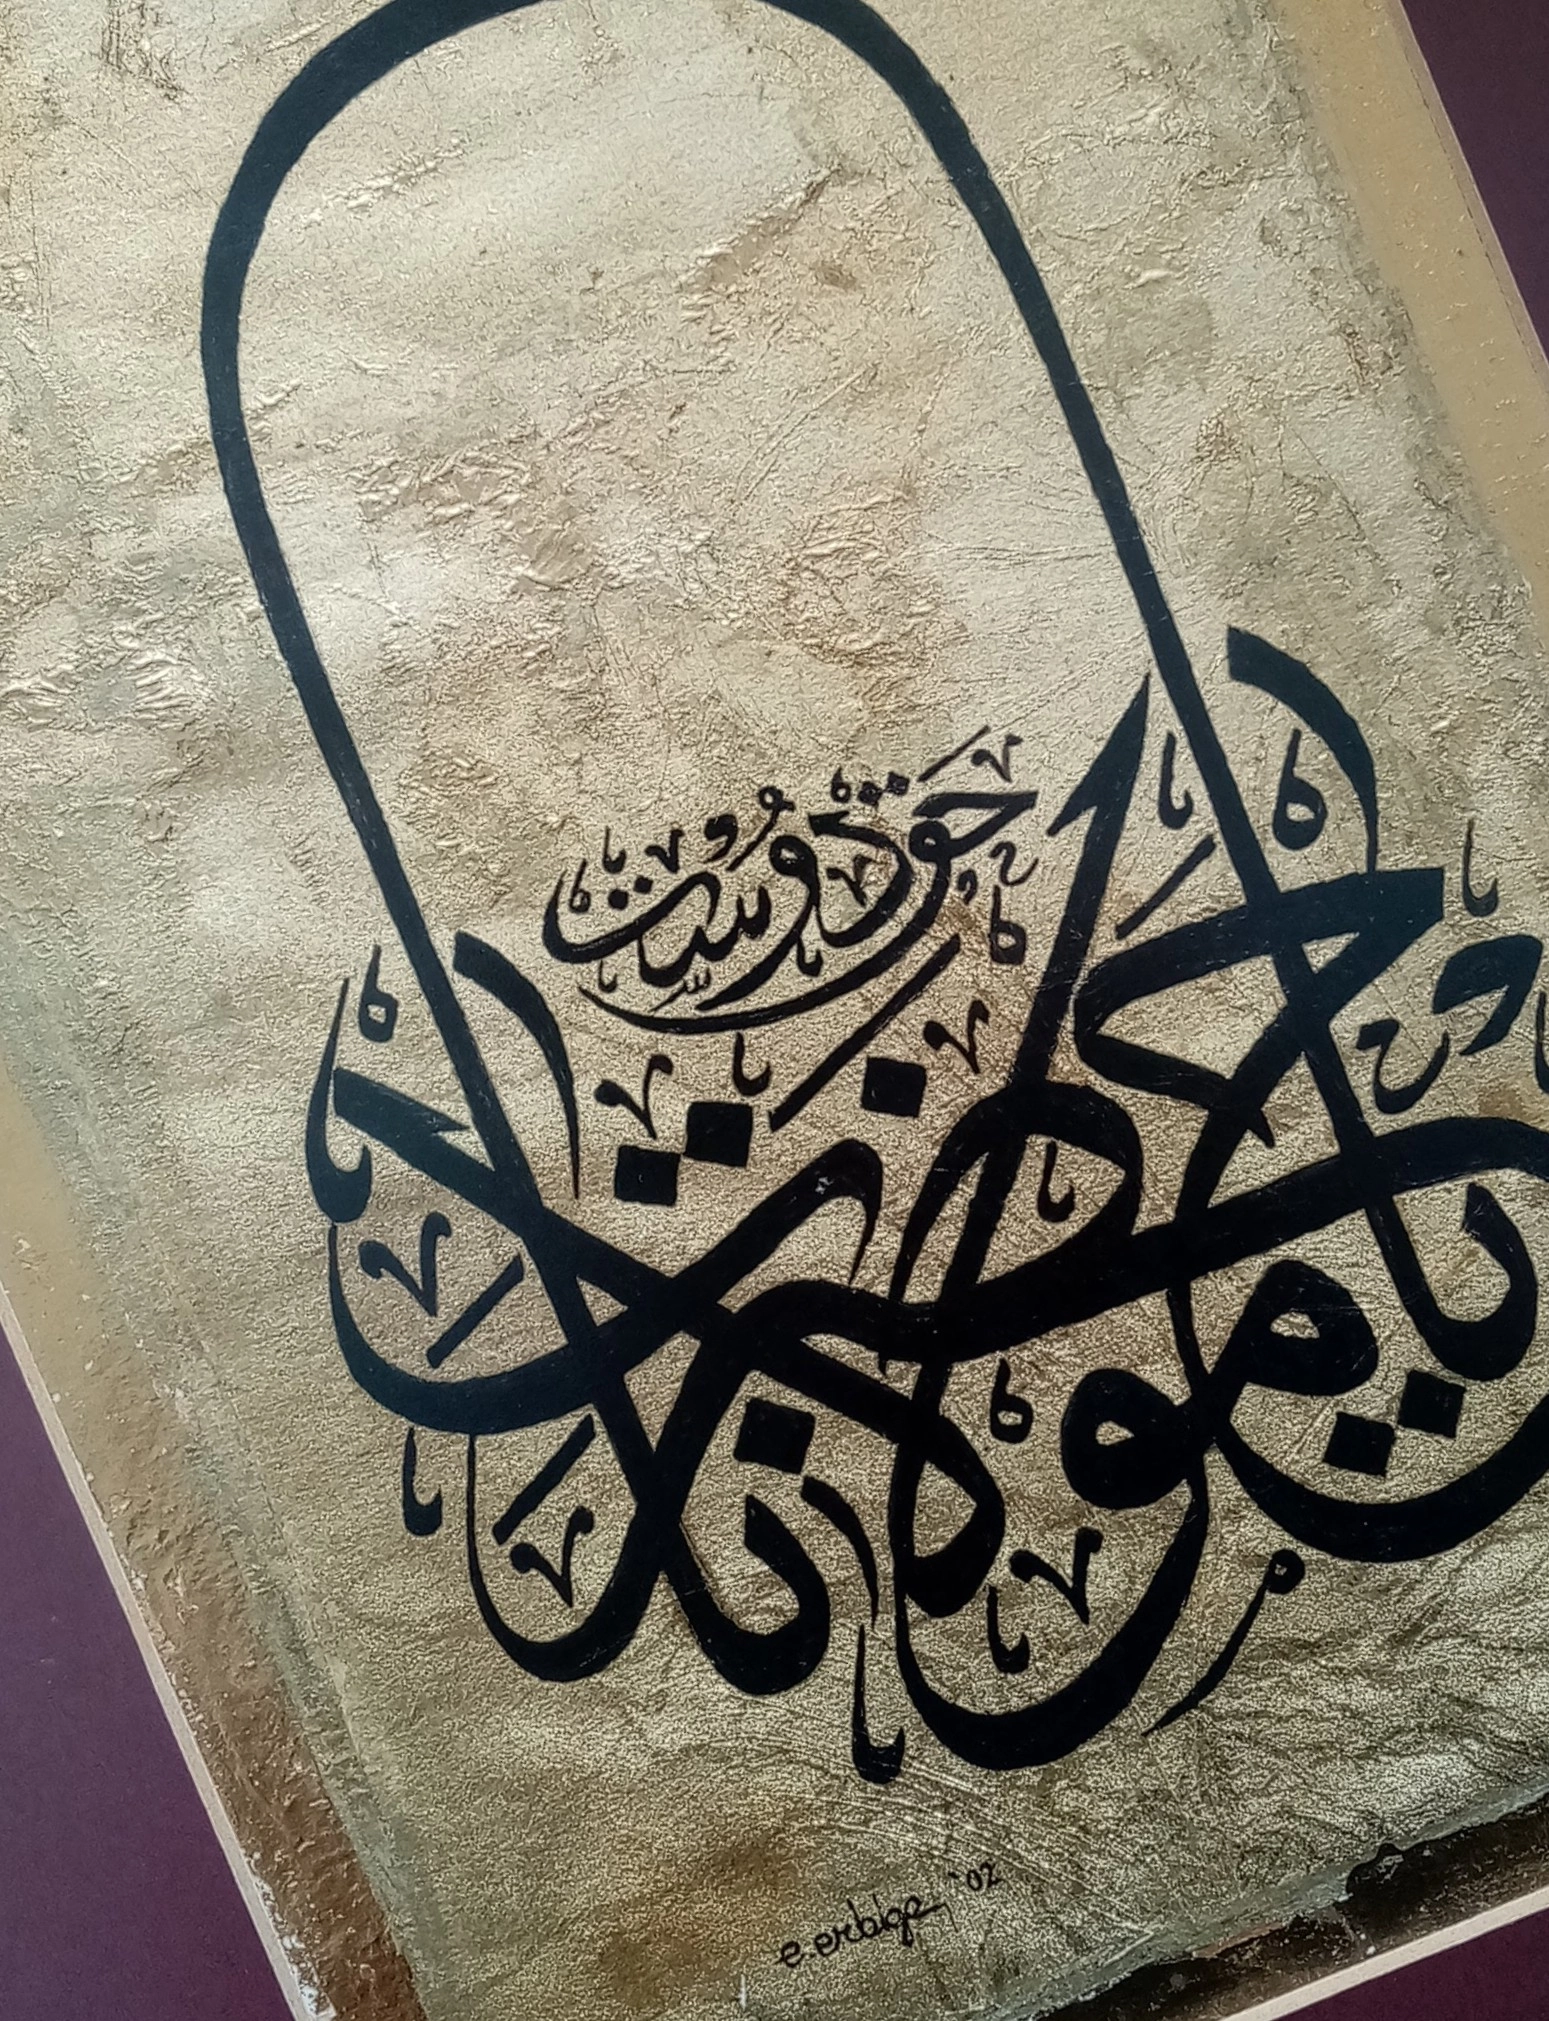 حق دوست
يا حضرت مولانا
e.erbilge '02